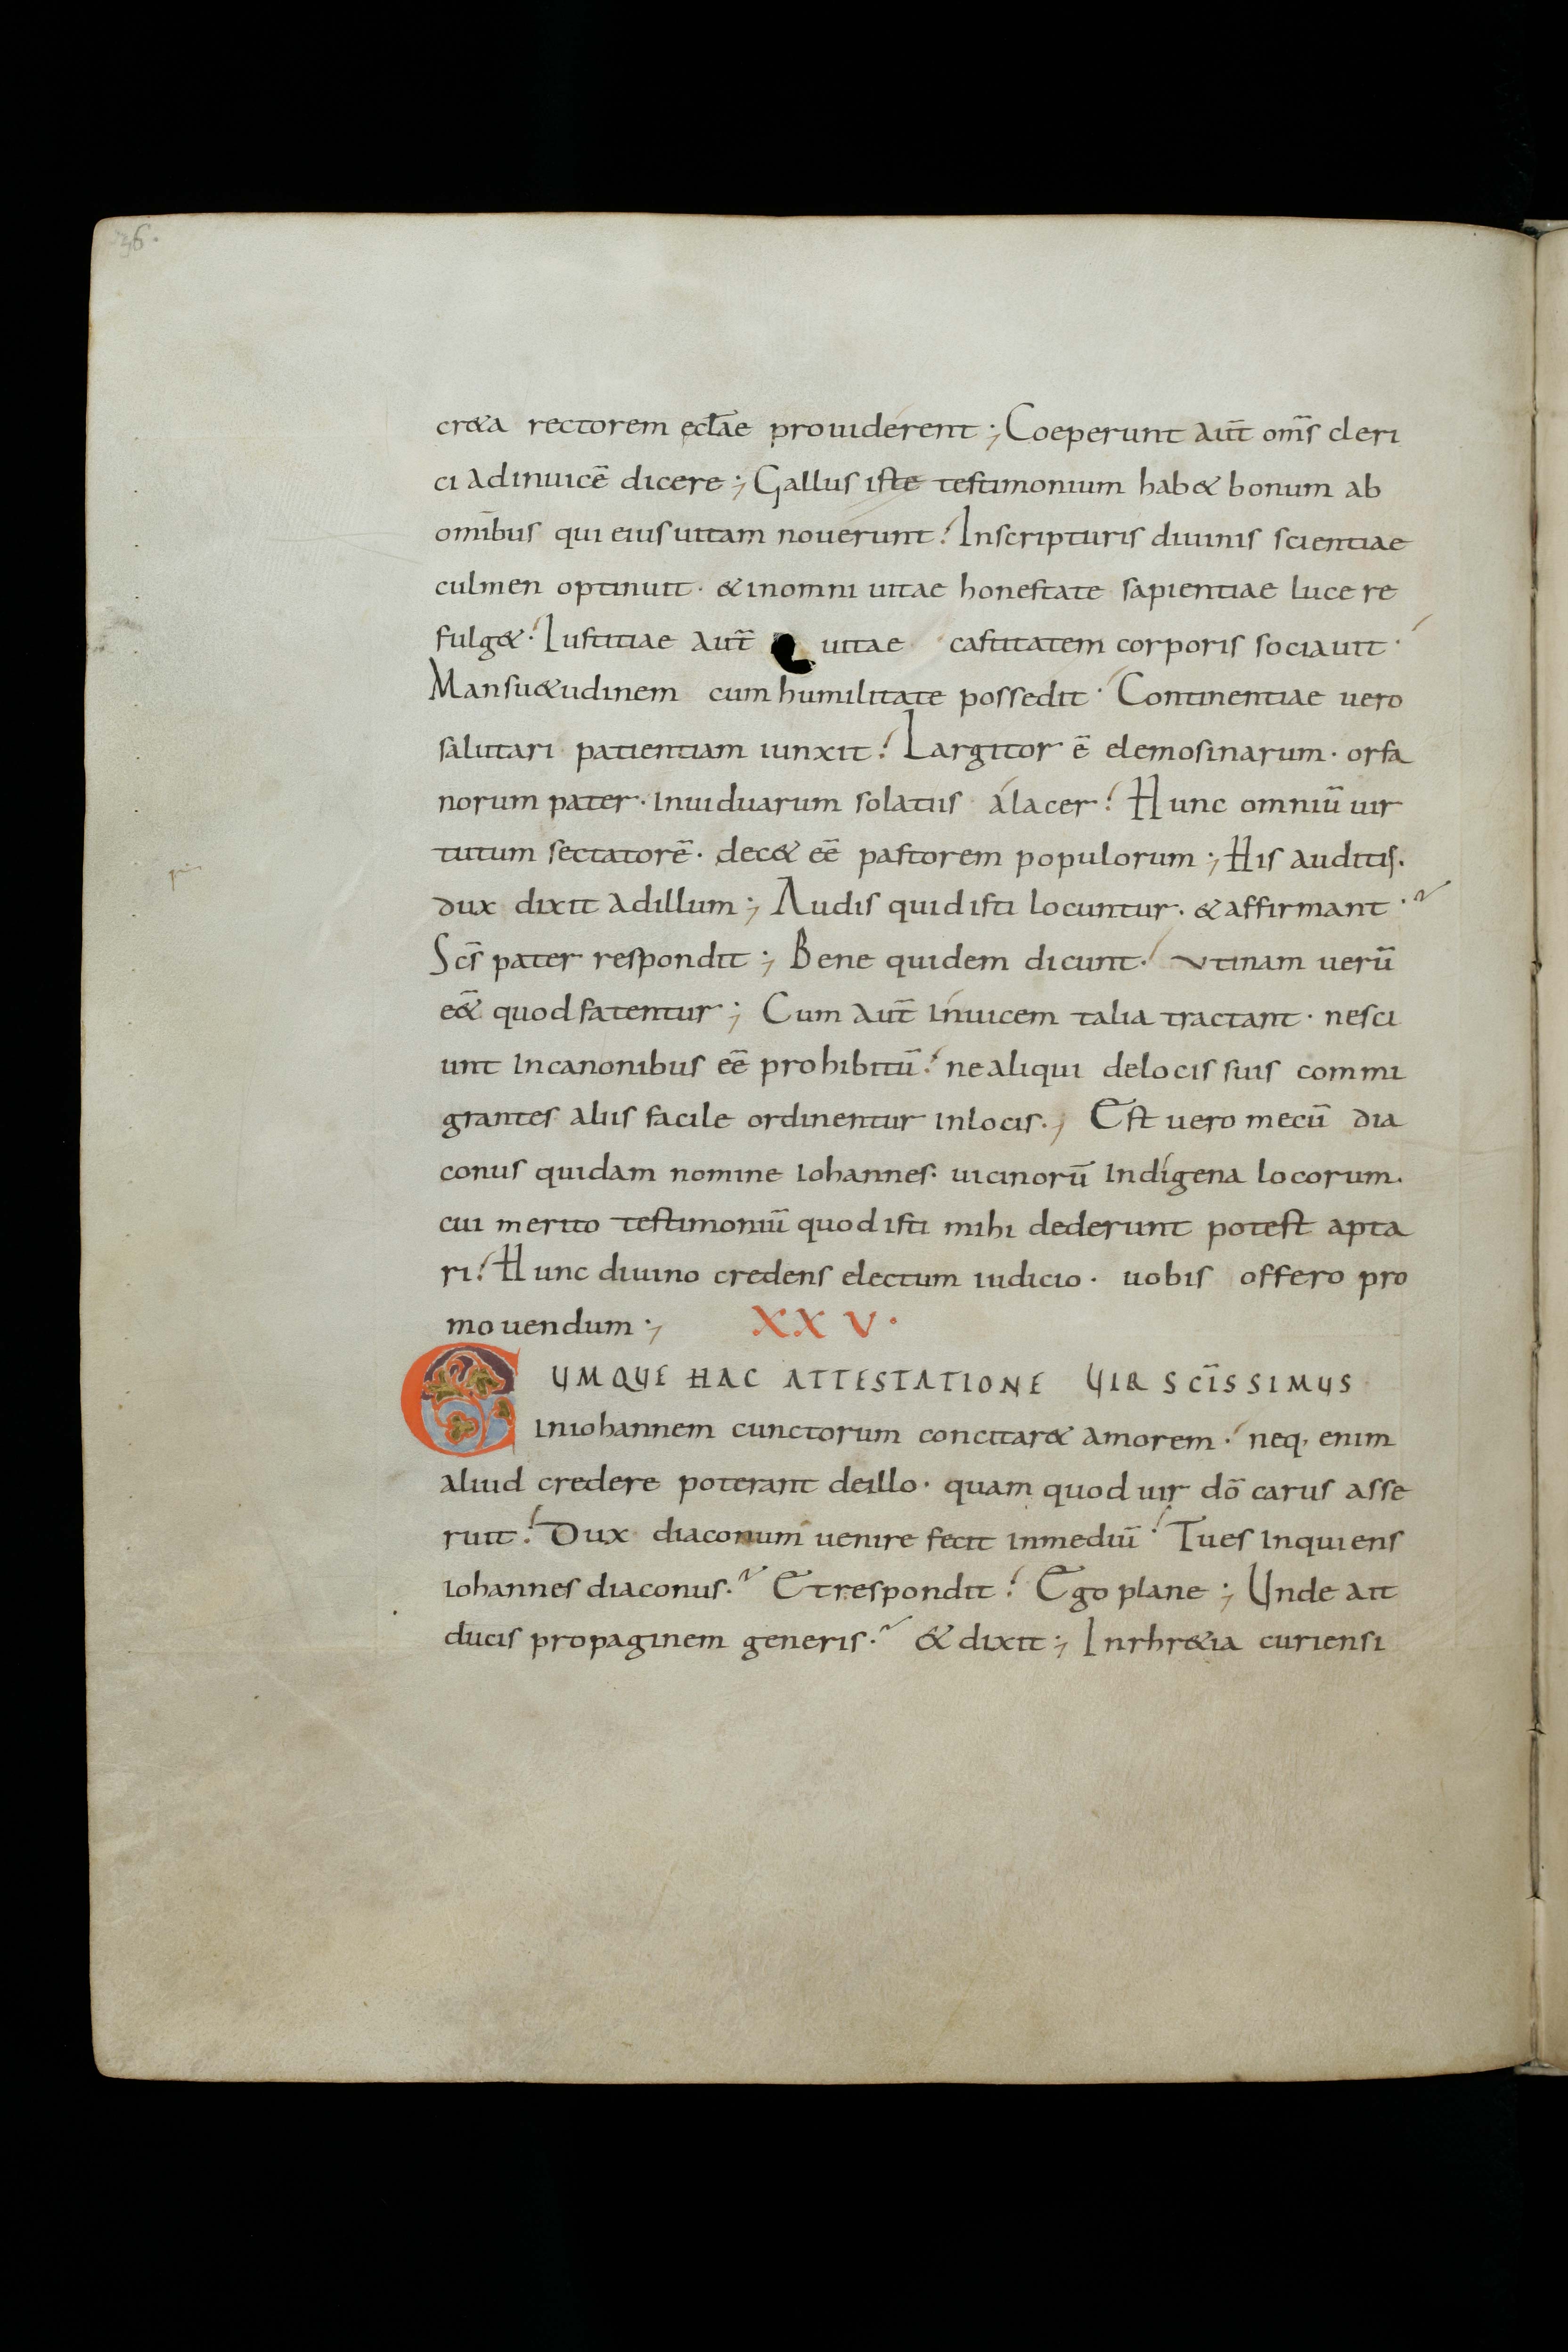 36.
cr&a rectorem eclae prouiderent ; Coeperunt aut̄ om̄s cleri
ci adinuicē dicere ; Gallus iste testimonium hab& bonum ab
omībus qui eius uitam nouerunt. Inscripturis diuinis scientiae
culmen optinuit · &inomni uitae honestate sapientiae luce re
fulg&. Iustitiae aut̄ uitae castitatem corporis sociauit ·
Mansu&udinem cum humilitate possedit · Continentiae uero
salutari patientiam iunxit. Largitor ē elemosinarum · orfa
norum pater · inuiduarum solatiis alacer. Hunc omniū uir
tutum sectatorē · dec& eē pastorem populorum ; His auditis.
dux dixit adillum ; Audis quid isti locuntur · &affirmant ·
Scs̄ pater respondit ; Bene quidem dicunt. utinam uerū
eē& quod fatentur ; Cum aut̄ inuicem talia tractant · nesci
unt incanonibus eē prohibitū. nealiqui delocis suis commi
grantes aliis facile ordinentur inlocis ; Est uero mecū dia
conus quidam nomine iohannes · uicinorū indigena locorum.
cui merito testimoniū quod isti mihi dederunt potest apta
ri. Hunc diuino credens electum iudicio · uobis offero pro
mouendum ; XXV ·
CUMQUE HAC ATTESTATIONE UIR SC̄ISSIMUS
iniohannem cunctorum concitar& amorem. neq, enim
aliud credere poterant deillo · quam quod uir dō carus asse
ruit. Dux diaconum uenire fecit inmediū. Tues inquiens
iohannes diaconus. Et respondit. Ego plane ; Unde ait
ducis propaginem generis. & dixit ; Inrhr&ia curiensi